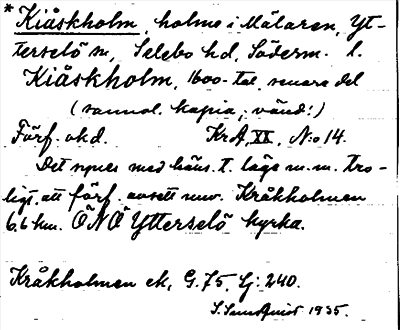 * Kiåskholm, holme i Mälaren, Yt-
terselö sn, Selebo hd, Söderm. l.
Kiåskholm, 1600-tal, senare del
(sannol. kopia; vänd!)
Förf. okd. KrA, XX, N:o 14.
Det synes med häns. t. läge m.m. tro-
ligt, att förf. avsett nuv. Kråkholmen
6,6 km. ÖNÖ Ytterselö kyrka.
Kråkholmen ek, G. 75, Lj: 240.
1935.